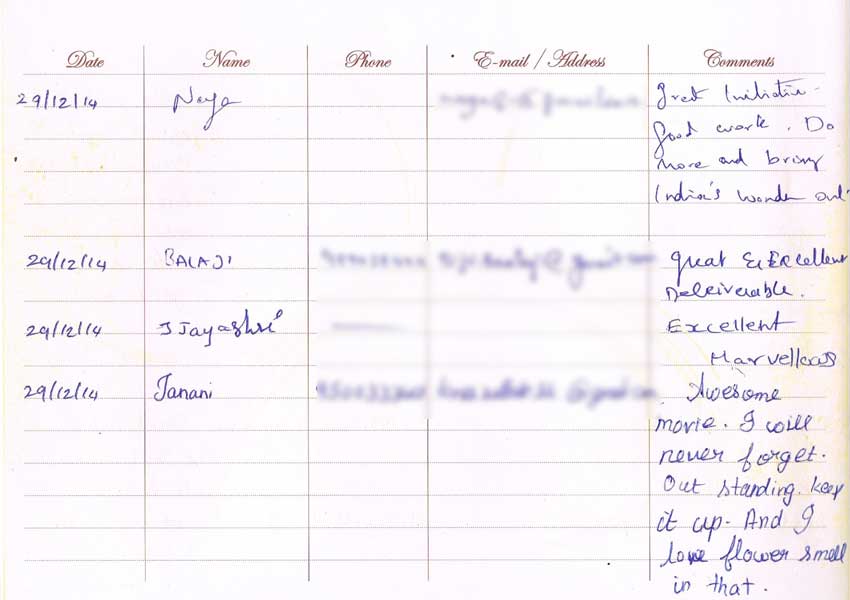 Date Name Phone E-mail / Address Comments
29/12/14 Naga Great Initiative.
Good work. Do
more and bring
India's wonder out.
29/12/14 BALAJI great & Excellent
Deleiverable.
29/12/14 J Jayashri Excellent
Marvellous
29/12/14 Janani Awesome
movie. I will
never forget.
Out standing. keep
it up. And I
love flower smell
in that.